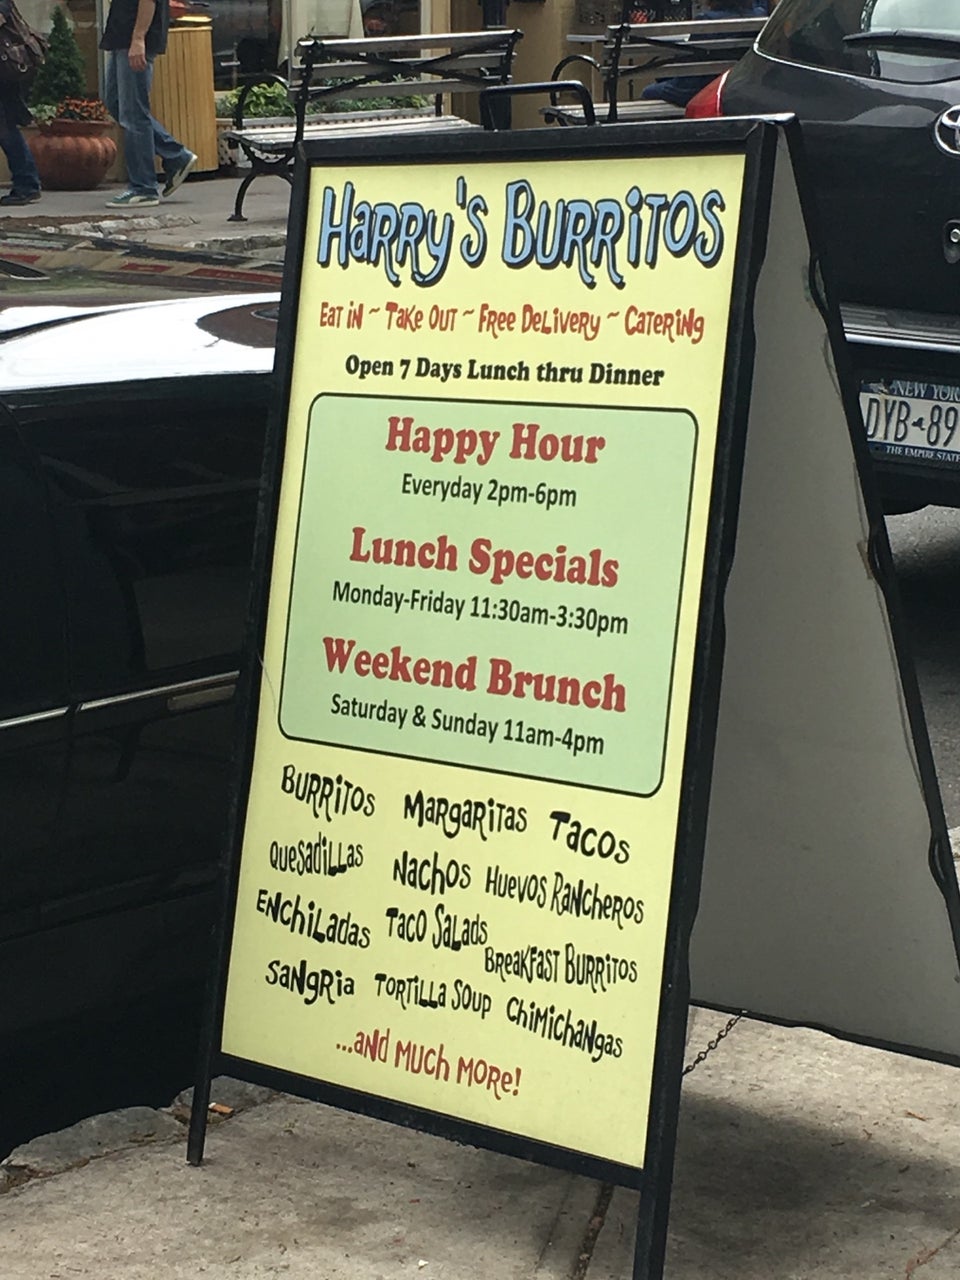 Harry's Burritos
Eat in ~ Take Out ~ Free Delivery ~ Catering
Open 7 Days Lunch thru Dinner
Happy Hour
Everyday 2pm-6pm
Lunch Specials
Monday-Friday 11:30am-3:30pm
Weekend Brunch
Saturday & Sunday 11am-4pm
Burritos Margaritas Tacos
Quesadillas Nachos Huevos Rancheros
Enchiladas Taco Salads Breakfast Burritos
Sangria Tortilla Soup Chimichangas
...and much more!
NEW YORK
DYB-89
THE EMPIRE STATE